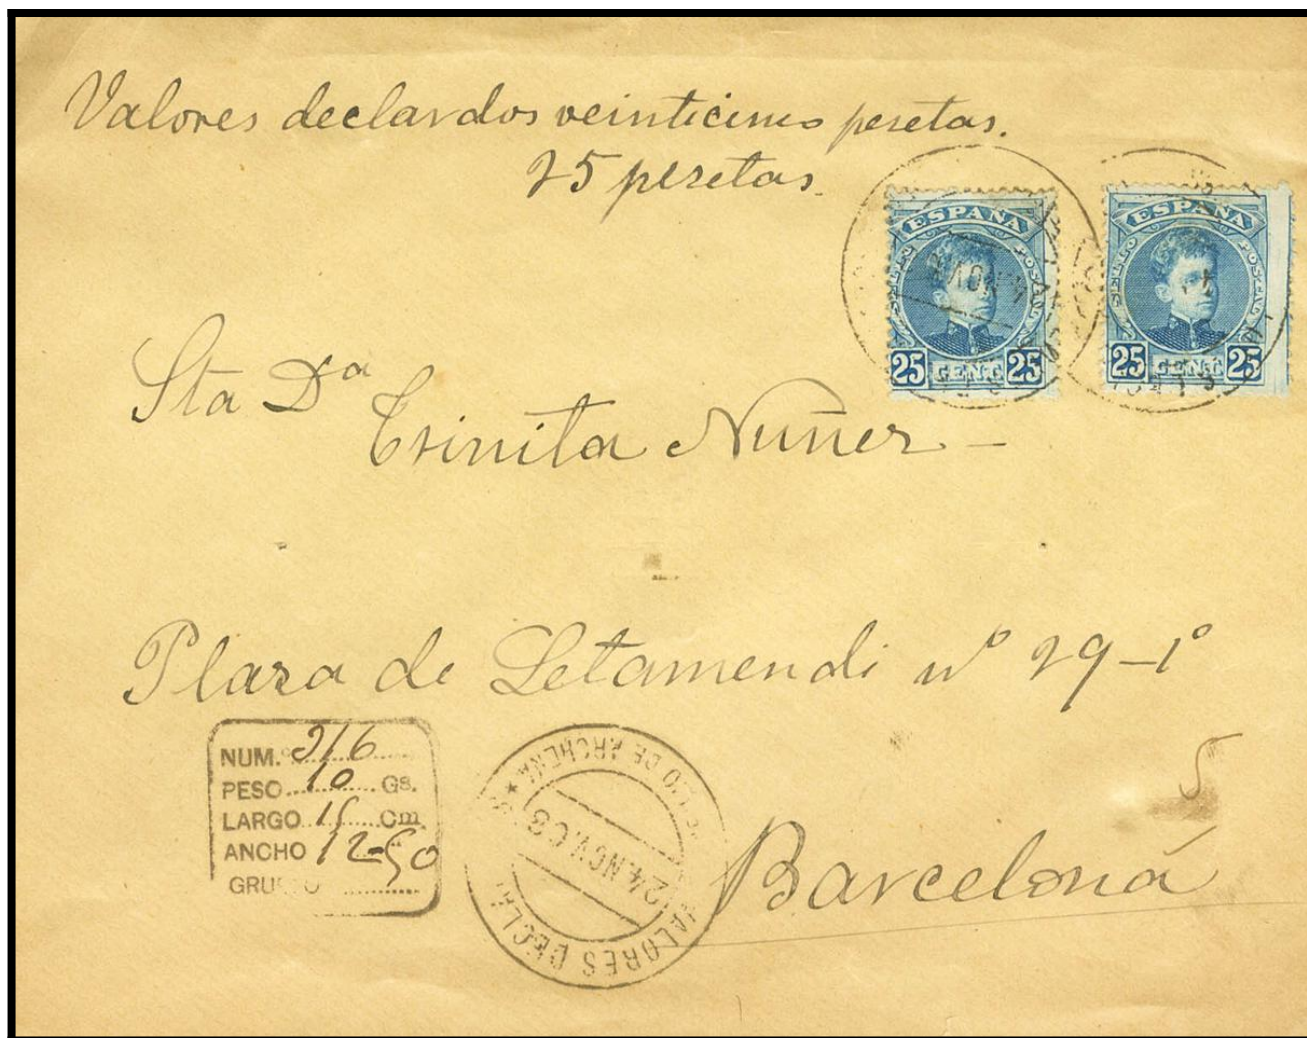 Valores declardos veinticinco pesetas.
25 pesetas.
ESPAÑA
SELLO POSTAL
25 CENT 25
ESPAÑA
SELLO POSTAL
25 CENT 25
Sta Dª
Trinita Nuñez -
Plaza de Letamendi nº 29-1º
NUM. 216
PESO 10 Gs.
LARGO 15 Cm.
ANCHO 12-50
VALORES DECLA
DE ARCHENA
24.NOV.08
5
Barcelona